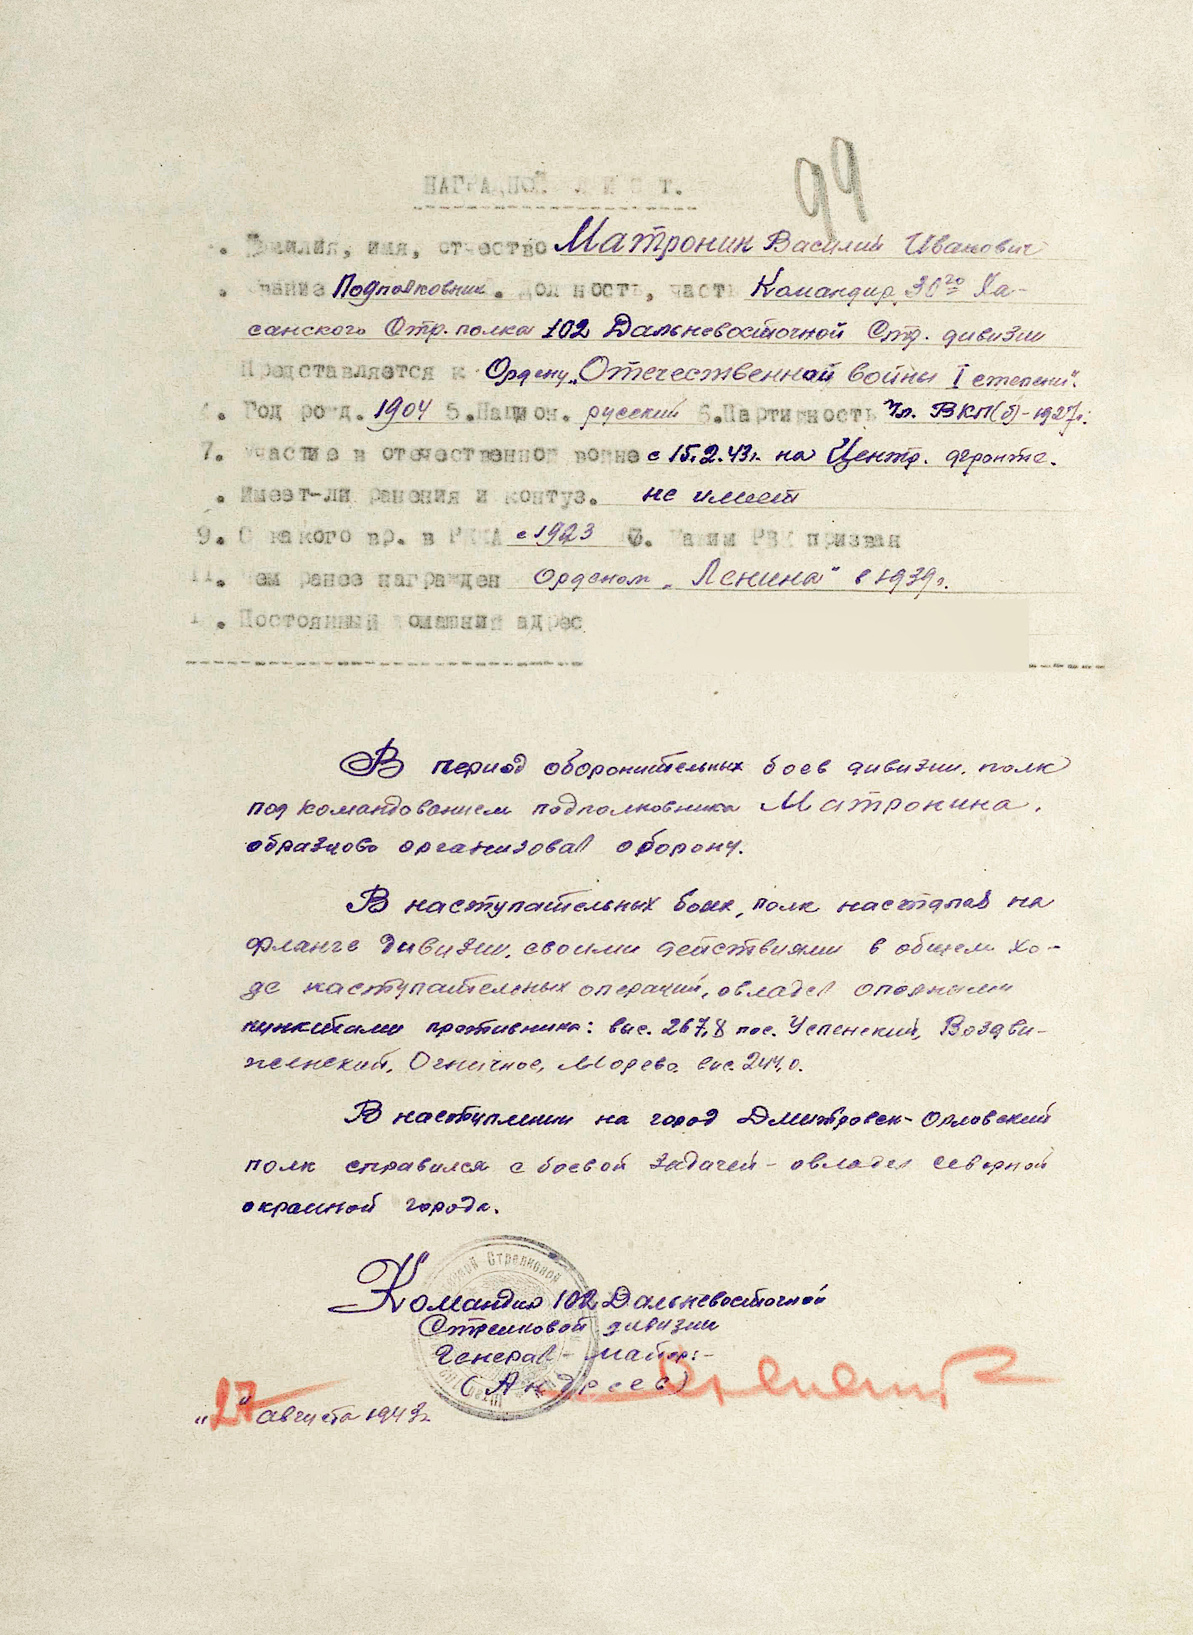 99
НАГРАДНОЙ ЛИСТ.
Фамилия, имя, отчество Матронин Василий Иванович
Звание Подполковник. Должность, часть Командир 30го Ха-
санского Стр. полка 102 Дальневосточной Стр. дивизии
Представляется к Ордену „Отечественной войны I степени".
4. Год рожд. 1904 5. Национ. русский 6. Партийность Чл. ВКП(б)-1927г.
7. Участие в отечественной войне с 15.2.43г. на Центр. фронте.
. Имеет-ли ранения и контуз. не имеет
9. С какого вр. в РККА с 1923 10. Каким РВК призван
11. Чем ранее награжден Орденом „Ленина" в 1939г.
1 . Постоянный домашний адрес
В период оборонительных боев дивизии, полк
под командованием подполковника Матронина,
образцово организовал оборону.
В наступательных боях, полк наступал на
фланге дивизии, своими действиями в общем хо-
де наступательных операций, овладел опорными
пунктами противника: выс. 267,8 пос. Успенский, Воздви-
женский, Огничное, Морево, выс. 244,0.
В наступлении на город Дмитровск-Орловский
полк справился с боевой задачей - овладел северной
окраиной города.
Командир 102 Дальневосточной
Стрелковой дивизии
Генерал-майор:-
(Андреев)
"27" августа 1943г.
Стрелковой